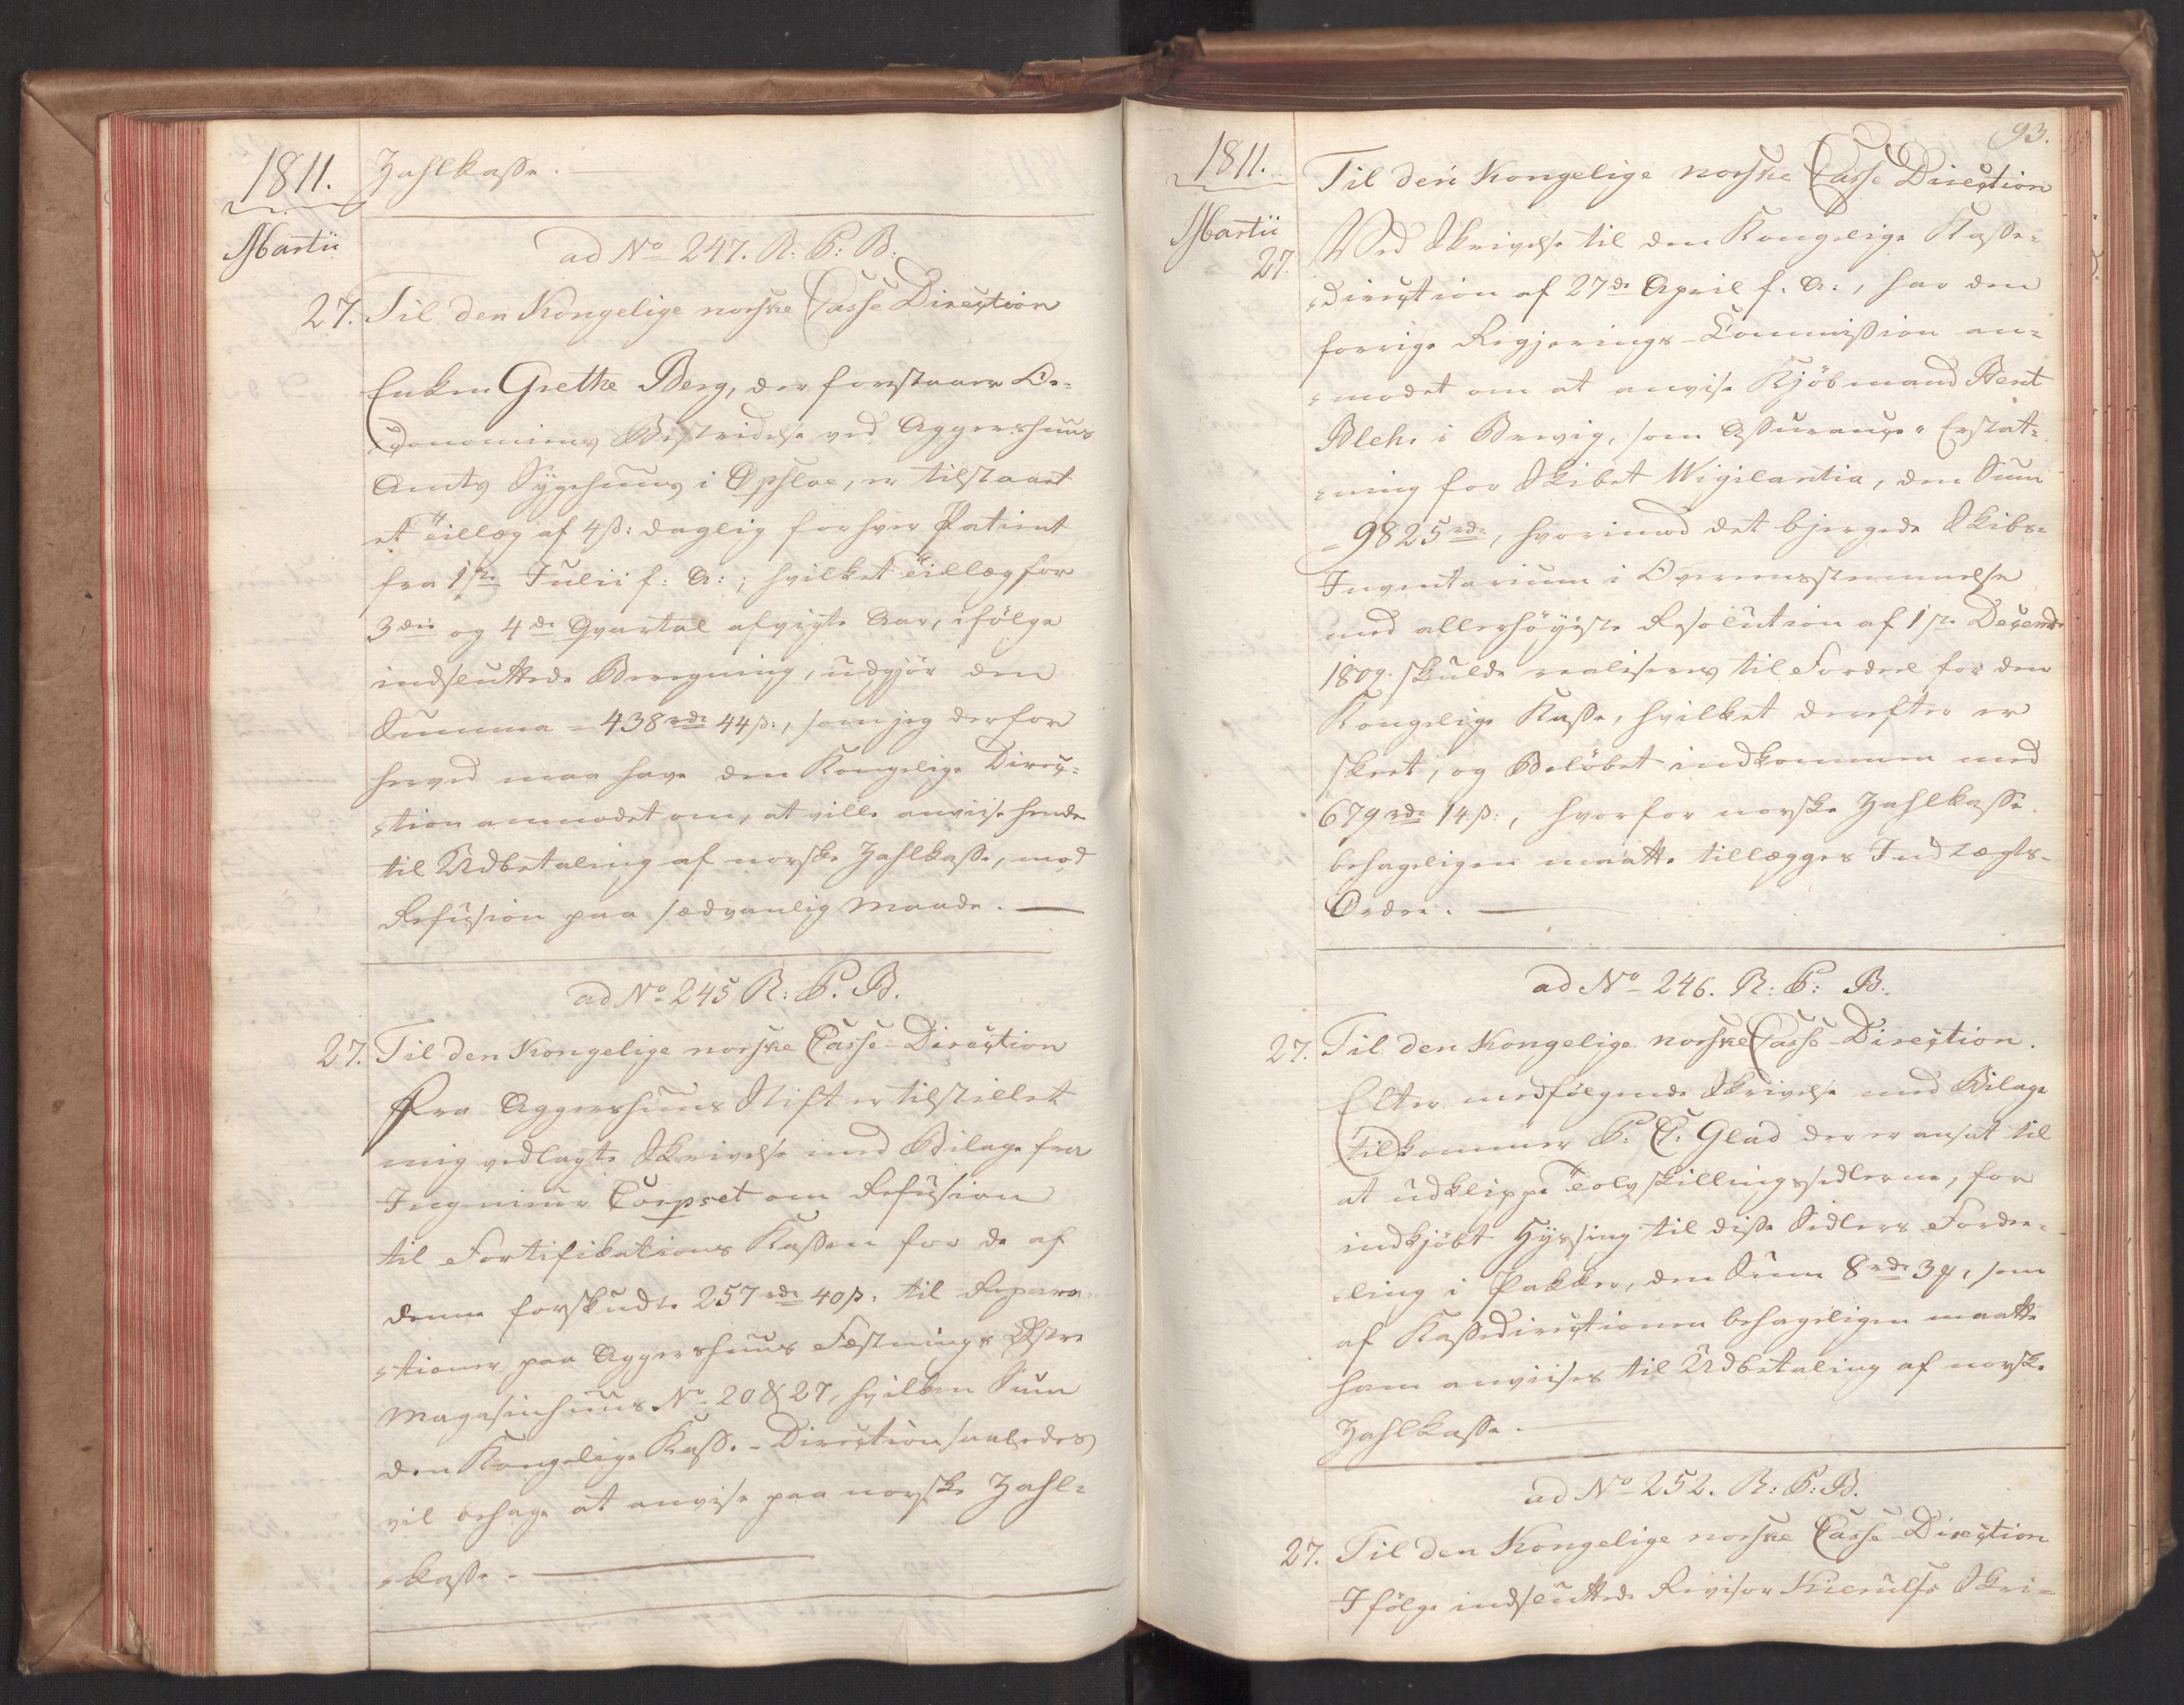 1811.
Martii
Zahlkasse. —
ad No 247. R: C: B:
27. Til den Kongelige norske Casse Direction
Enken Grethe Berg, der forestaaer Oe-
conomiens Bestridelse ved Aggershuus
Amts Sygehuus i Opsloe, er tilstaaet
et Tillæg af 4 ß: daglig for hver Patient
fra 1ste Julii f: A:; hvilket Tillæg for
3die og 4de Qvartal afvigte Aar, ifölge
indsluttede Beregning, udgjör den
Summa = 438 rdr 44 ß:, som jeg derfor
herved maa have den Kongelige Direc-
-tion anmodet om, at ville anviise hende
til Udbetaling af norske Zahlkasse, mod
Refusion paa sædvanlig Maade. —
ad No 245 R: C. B.
27. Til den Kongelige norske Casse-Direction
Fra Aggershuus Stift er tilstillet
mig vedlagte Skrivelse med Bilage fra
Ingenieur Corpset om Refusion
til Fortifikations Kassen for de af
denne forskudte 257 rdr 40 ß: til Repara-
-tioner paa Aggershuus Fæstnings
Magasinhuus No 20 & 27, hvilken Sum
den Kongelige Kasse-Direction saaledes
vil behage at anvise paa norske Zahl-
-kasse. —
93.
1811.
Martii
27.
Til den Kongelige norske Casse Direction
Ved Skrivelse til den Kongelige Kasse-
-direction af 27de April f: A:, har den
forrige Regjerings-Commission an-
-modet om at anvise Kjöbmand Bent
Bleh i Brevig, som Assurance-Erstat-
-ning for Skibet Wigilantia, den Sum
= 9825 rdr, hvorimod det bjergede Skibs-
Inventarium i Overeensstemmelse
med allerhöyeste Resolution af 1ste Decembr
1809. skulde realiseres til Fordeel for den
Kongelige Kasse, hvilket derefter er
skeet, og Belöbet indkommen med
679 rdr 14 ß:, hvorfor norske Zahlkasse
behageligen maatte tillægges Indtægts-
Ordre. —
ad No 246. R: C: B:
27. Til den Kongelige norske Casse-Direction.
Efter medfölgende Skrivelse med Bilage
tilkommer C. Glad der er ansat til
at udklippe Tolvskillingssedlerne, for
indkjöbt Hyssing til disse Sedlers Forde-
-ling i Pakker, den Sum 8 rdr 3 , som
af Kassedirectionen behageligen maatte
ham anviises til Udbetaling af norske
Zahlkasse. —
ad No 252. R: C: B.
27. Til den Kongelige norske Casse-Direction
Ifölge indsluttede Revisor Kierulfs Skri-